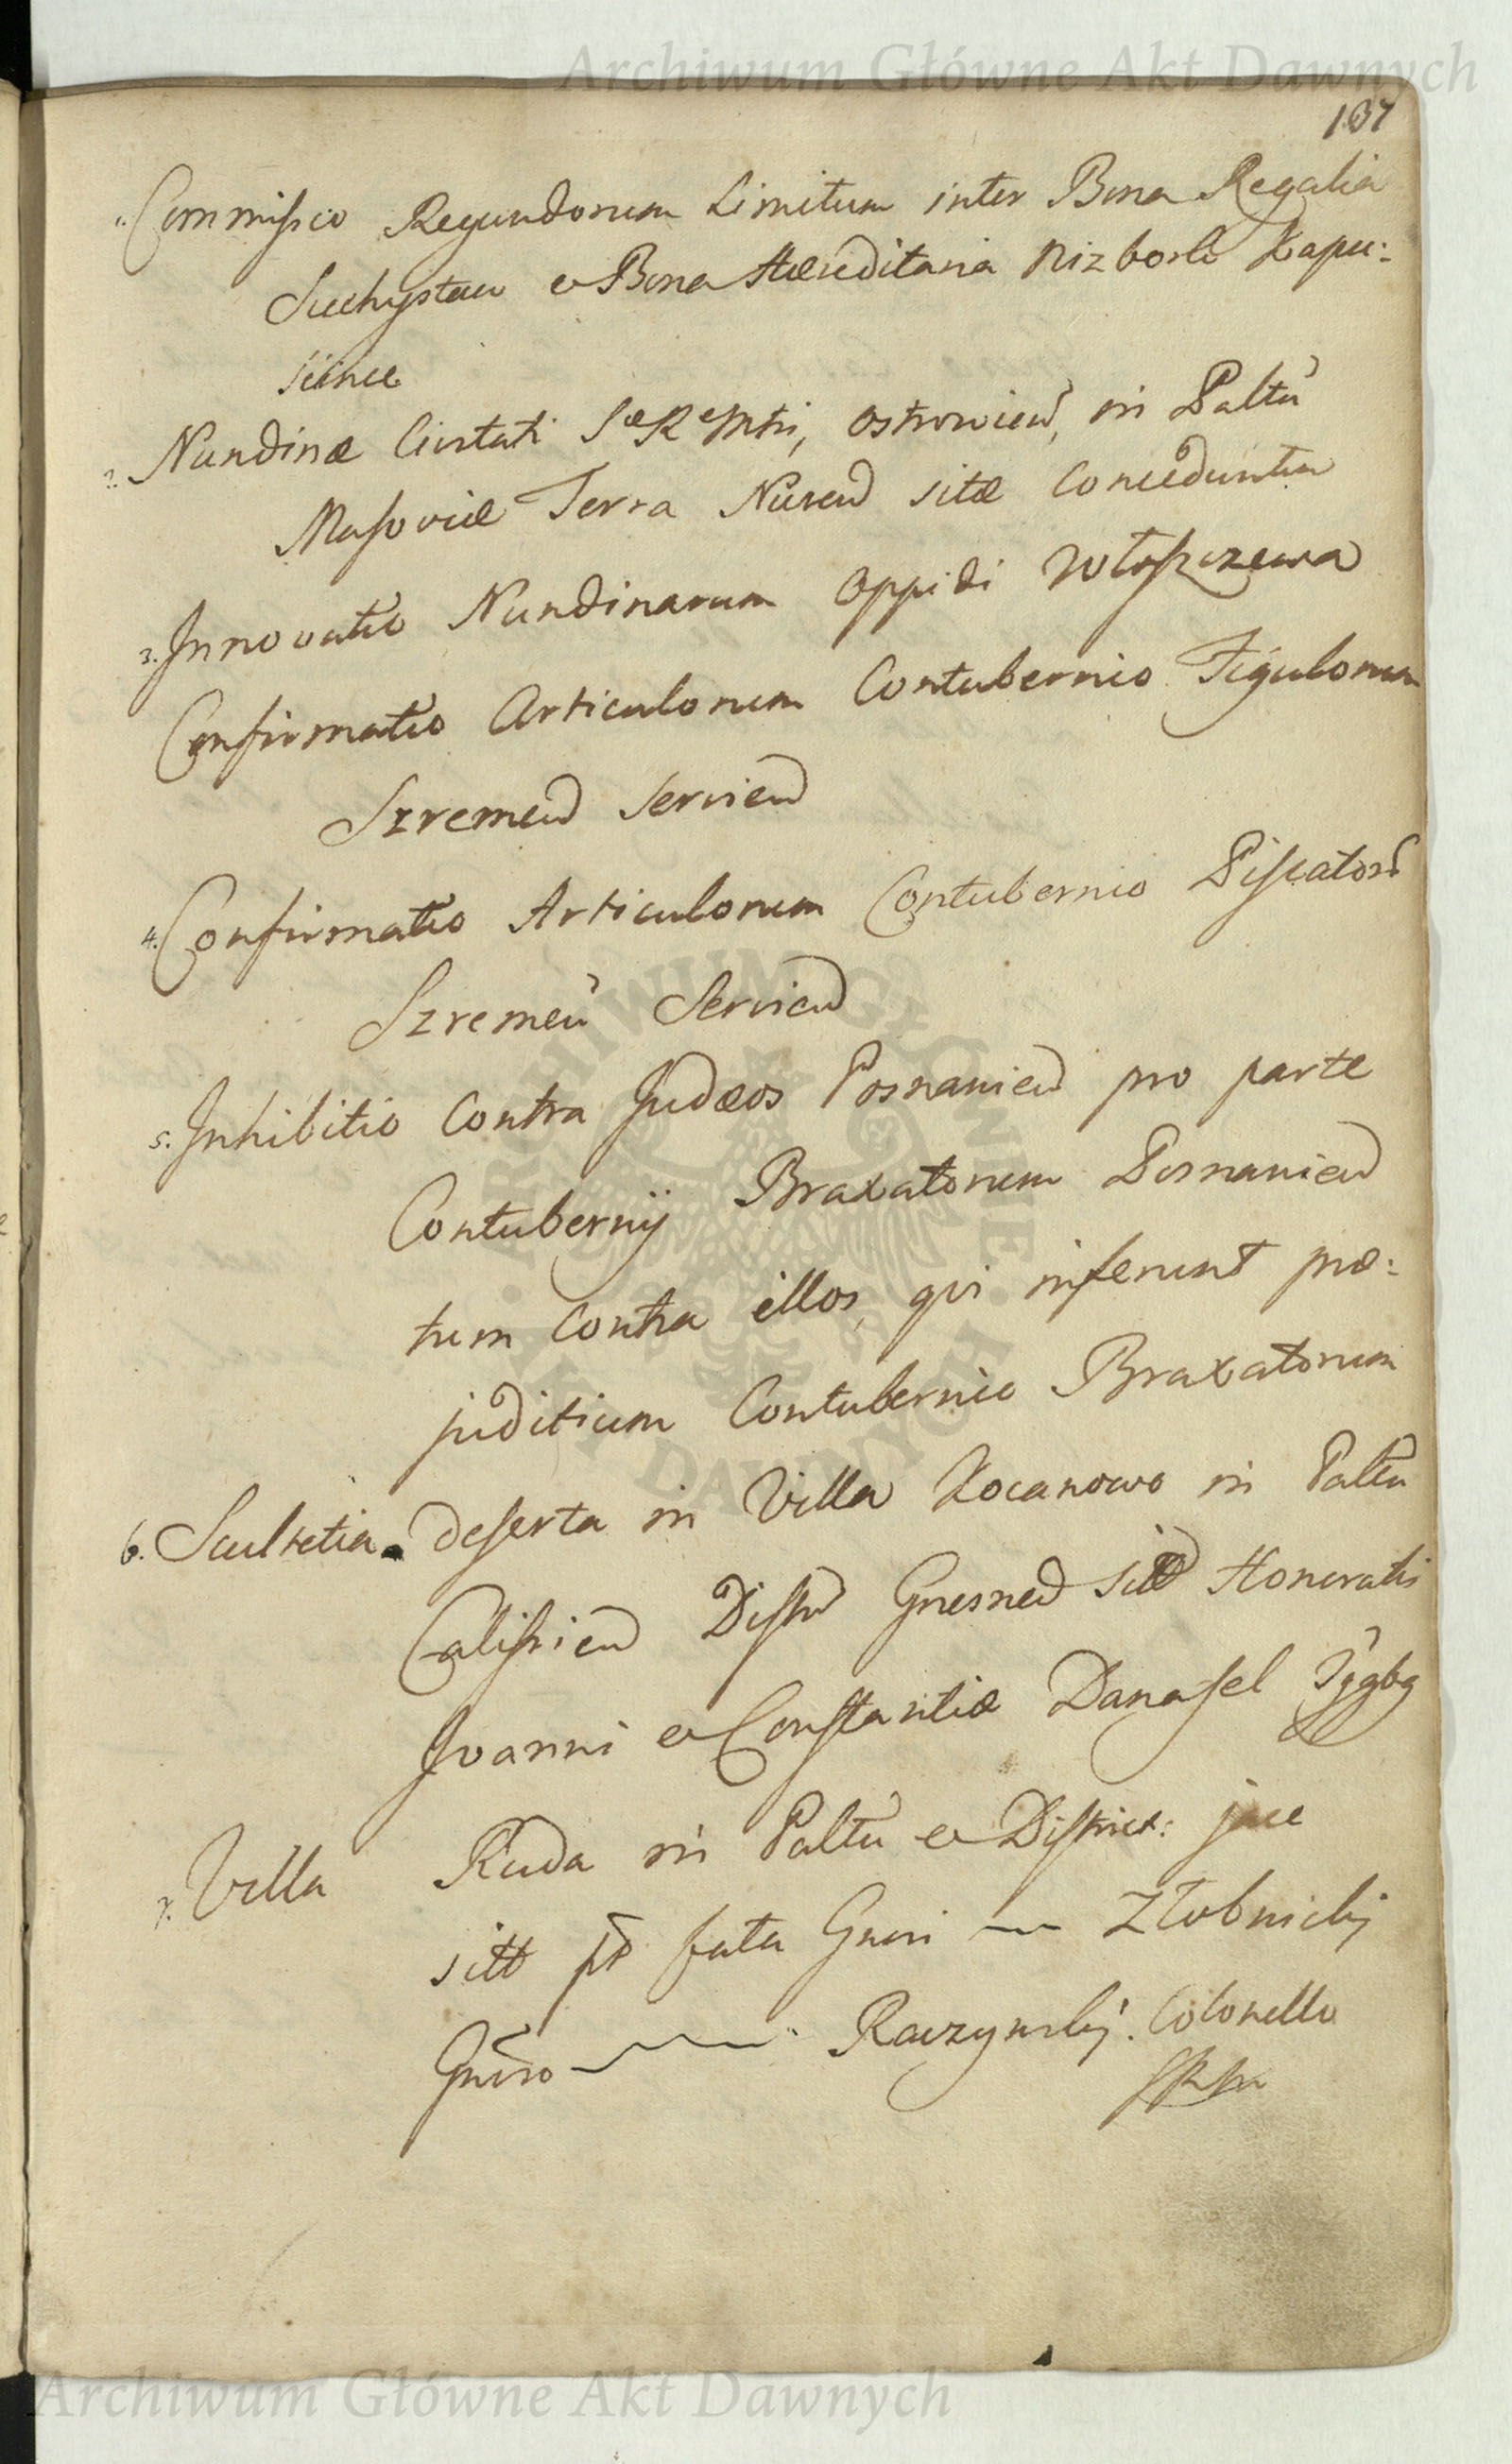 Archiwum Główne Akt Dawnych
137
1. Commissio Regundorum Limitum inter Bona Regalia
Suchystaw et Bona Hæreditaria Nizborh Kapu:
siince
2. Nundinæ Civitati Sæ Ræ Mtti, Ostrovien, in Paltu
Masoviæ Terra Nuren sitæ Conceduntur
3. Innovatio Nundinarum Oppidi Włoszczewa
Confirmatio Articulorum Contubernio Figulorum
Szremen Servien
4. Confirmatio Articulorum Contubernio Piscator
Szremen Servien
5. Inhibitio Contra Judæos Posnanien pro parte
Contubernij Braxatorum Posnanien
tum Contra illos, qvi inferunt præ:
juditium Contubernio Braxatorum
6. Scultetia deserta in Villa Kocanowo in Paltu
Calissien Distr Gnesnen sitt Honorati
Joanni et Constantiæ Danasel
7. Villa Ruda in Paltu et District: jce
sitt pt fata Gnosi Złobnickij
Gnoso Raczynskij. Colonello
ARCHIWUM GŁÓWNE AKT DAWNYCH
Archiwum Główne Akt Dawnych